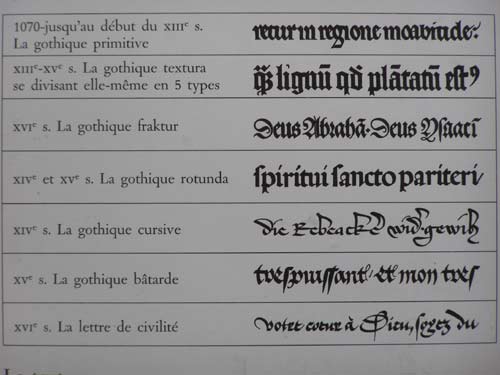 1070-jusqu'au début du XIIIᵉ s.
La gothique primitive
retur in regione moabitide:
XIIIᵉ-XVᵉ s. La gothique textura
se divisant elle-même en 5 types
lignū qd̄ plātatū est
XVIᵉ s. La gothique fraktur
Deus Abrahā. Deus Ysaaci
XIVᵉ et XVᵉ s. La gothique rotunda
spiritui sancto pariteri
XIVᵉ s. La gothique cursive
die
XVᵉ s. La gothique bâtarde
trespuissant et mon tres
XVIᵉ s. La lettre de civilité
votre cœur à Dieu, soyez du